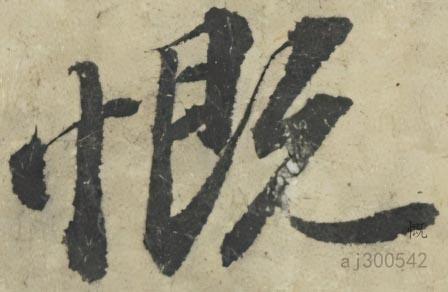 慨
慨
aj300542